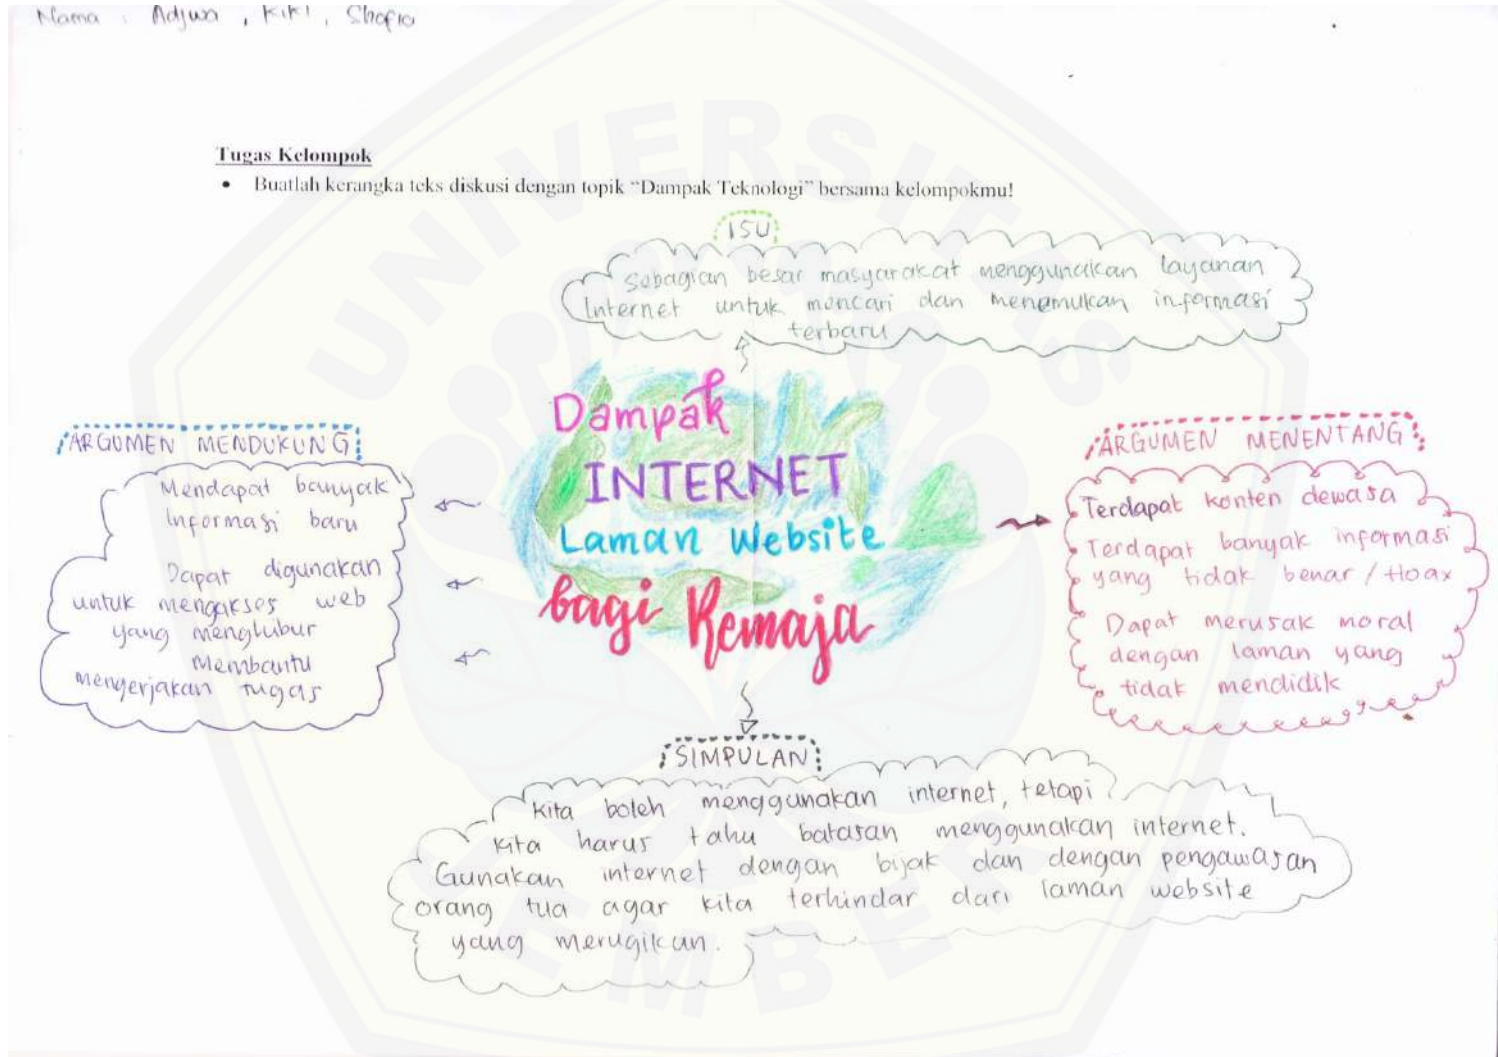 Nama : Adjwa , Kiki , Shofia
Tugas Kelompok
• Buatlah kerangka teks diskusi dengan topik “Dampak Teknologi” bersama kelompokmu!
ISU
Sebagian besar masyarakat menggunakan layanan
Internet untuk mencari dan menemukan informasi
terbaru
Dampak
INTERNET
Laman Website
bagi Remaja
ARGUMEN MENDUKUNG
Mendapat banyak
Informasi baru
Dapat digunakan
untuk mengakses web
yang menghibur
Membantu
mengerjakan tugas
ARGUMEN MENENTANG
• Terdapat konten dewasa
• Terdapat banyak informasi
yang tidak benar / Hoax
• Dapat merusak moral
dengan laman yang
tidak mendidik
SIMPULAN
Kita boleh menggunakan internet, tetapi
kita harus tahu batasan menggunakan internet.
Gunakan internet dengan bijak dan dengan pengawasan
orang tua agar kita terhindar dari laman website
yang merugikan.
UNIVERSITAS
JEMBER